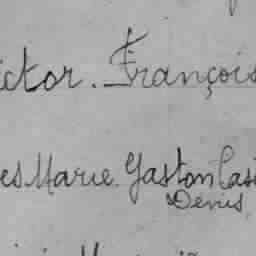 ictor. François
es Marie Gaston Casi
Denis